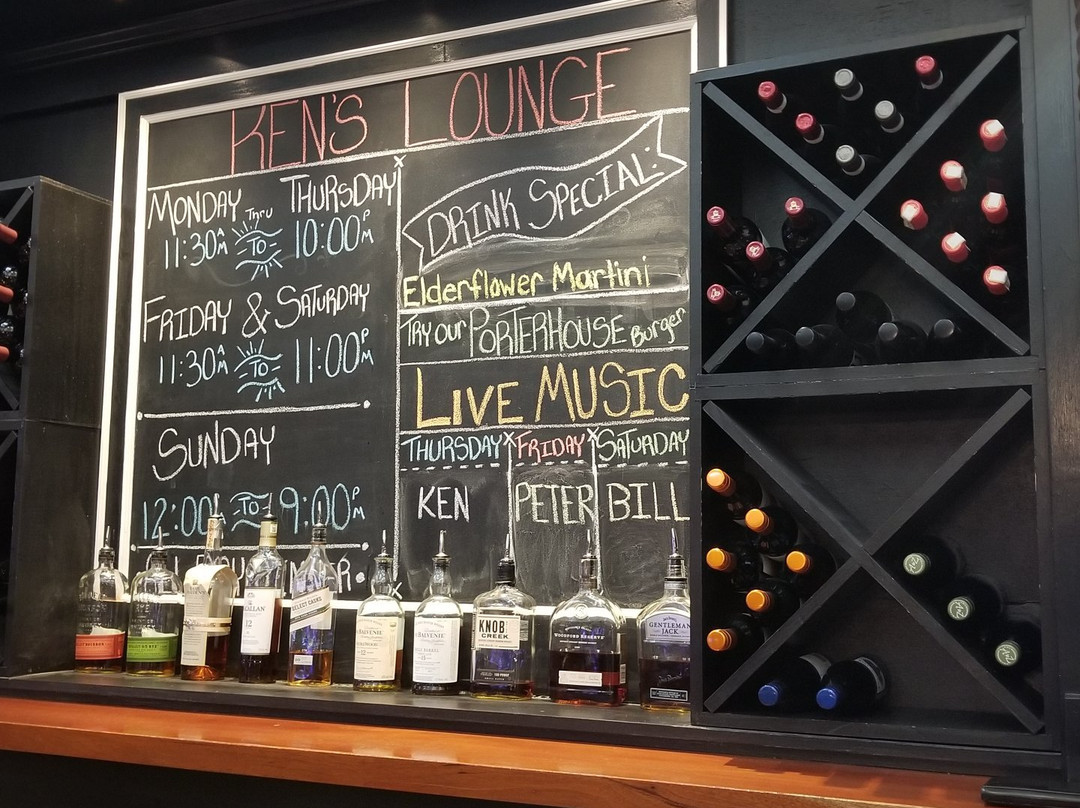 KEN'S LOUNGE
MONDAY Thru THURSDAY
11:30AM TO 10:00PM
FRIDAY & SATURDAY
11:30AM TO 11:00PM
SUNDAY
12:00 TO 9:00PM
DRINK SPECIAL:
Elderflower Martini
TRY OUR PORTERHOUSE Burger
LIVE MUSIC
THURSDAY FRIDAY SATURDAY
KEN PETER BILL
RYE
12
SELECT CASKS
BALVENIE
BALVENIE
KNOB
CREEK
WOODFORD RESERVE
GENTLEMAN
JACK